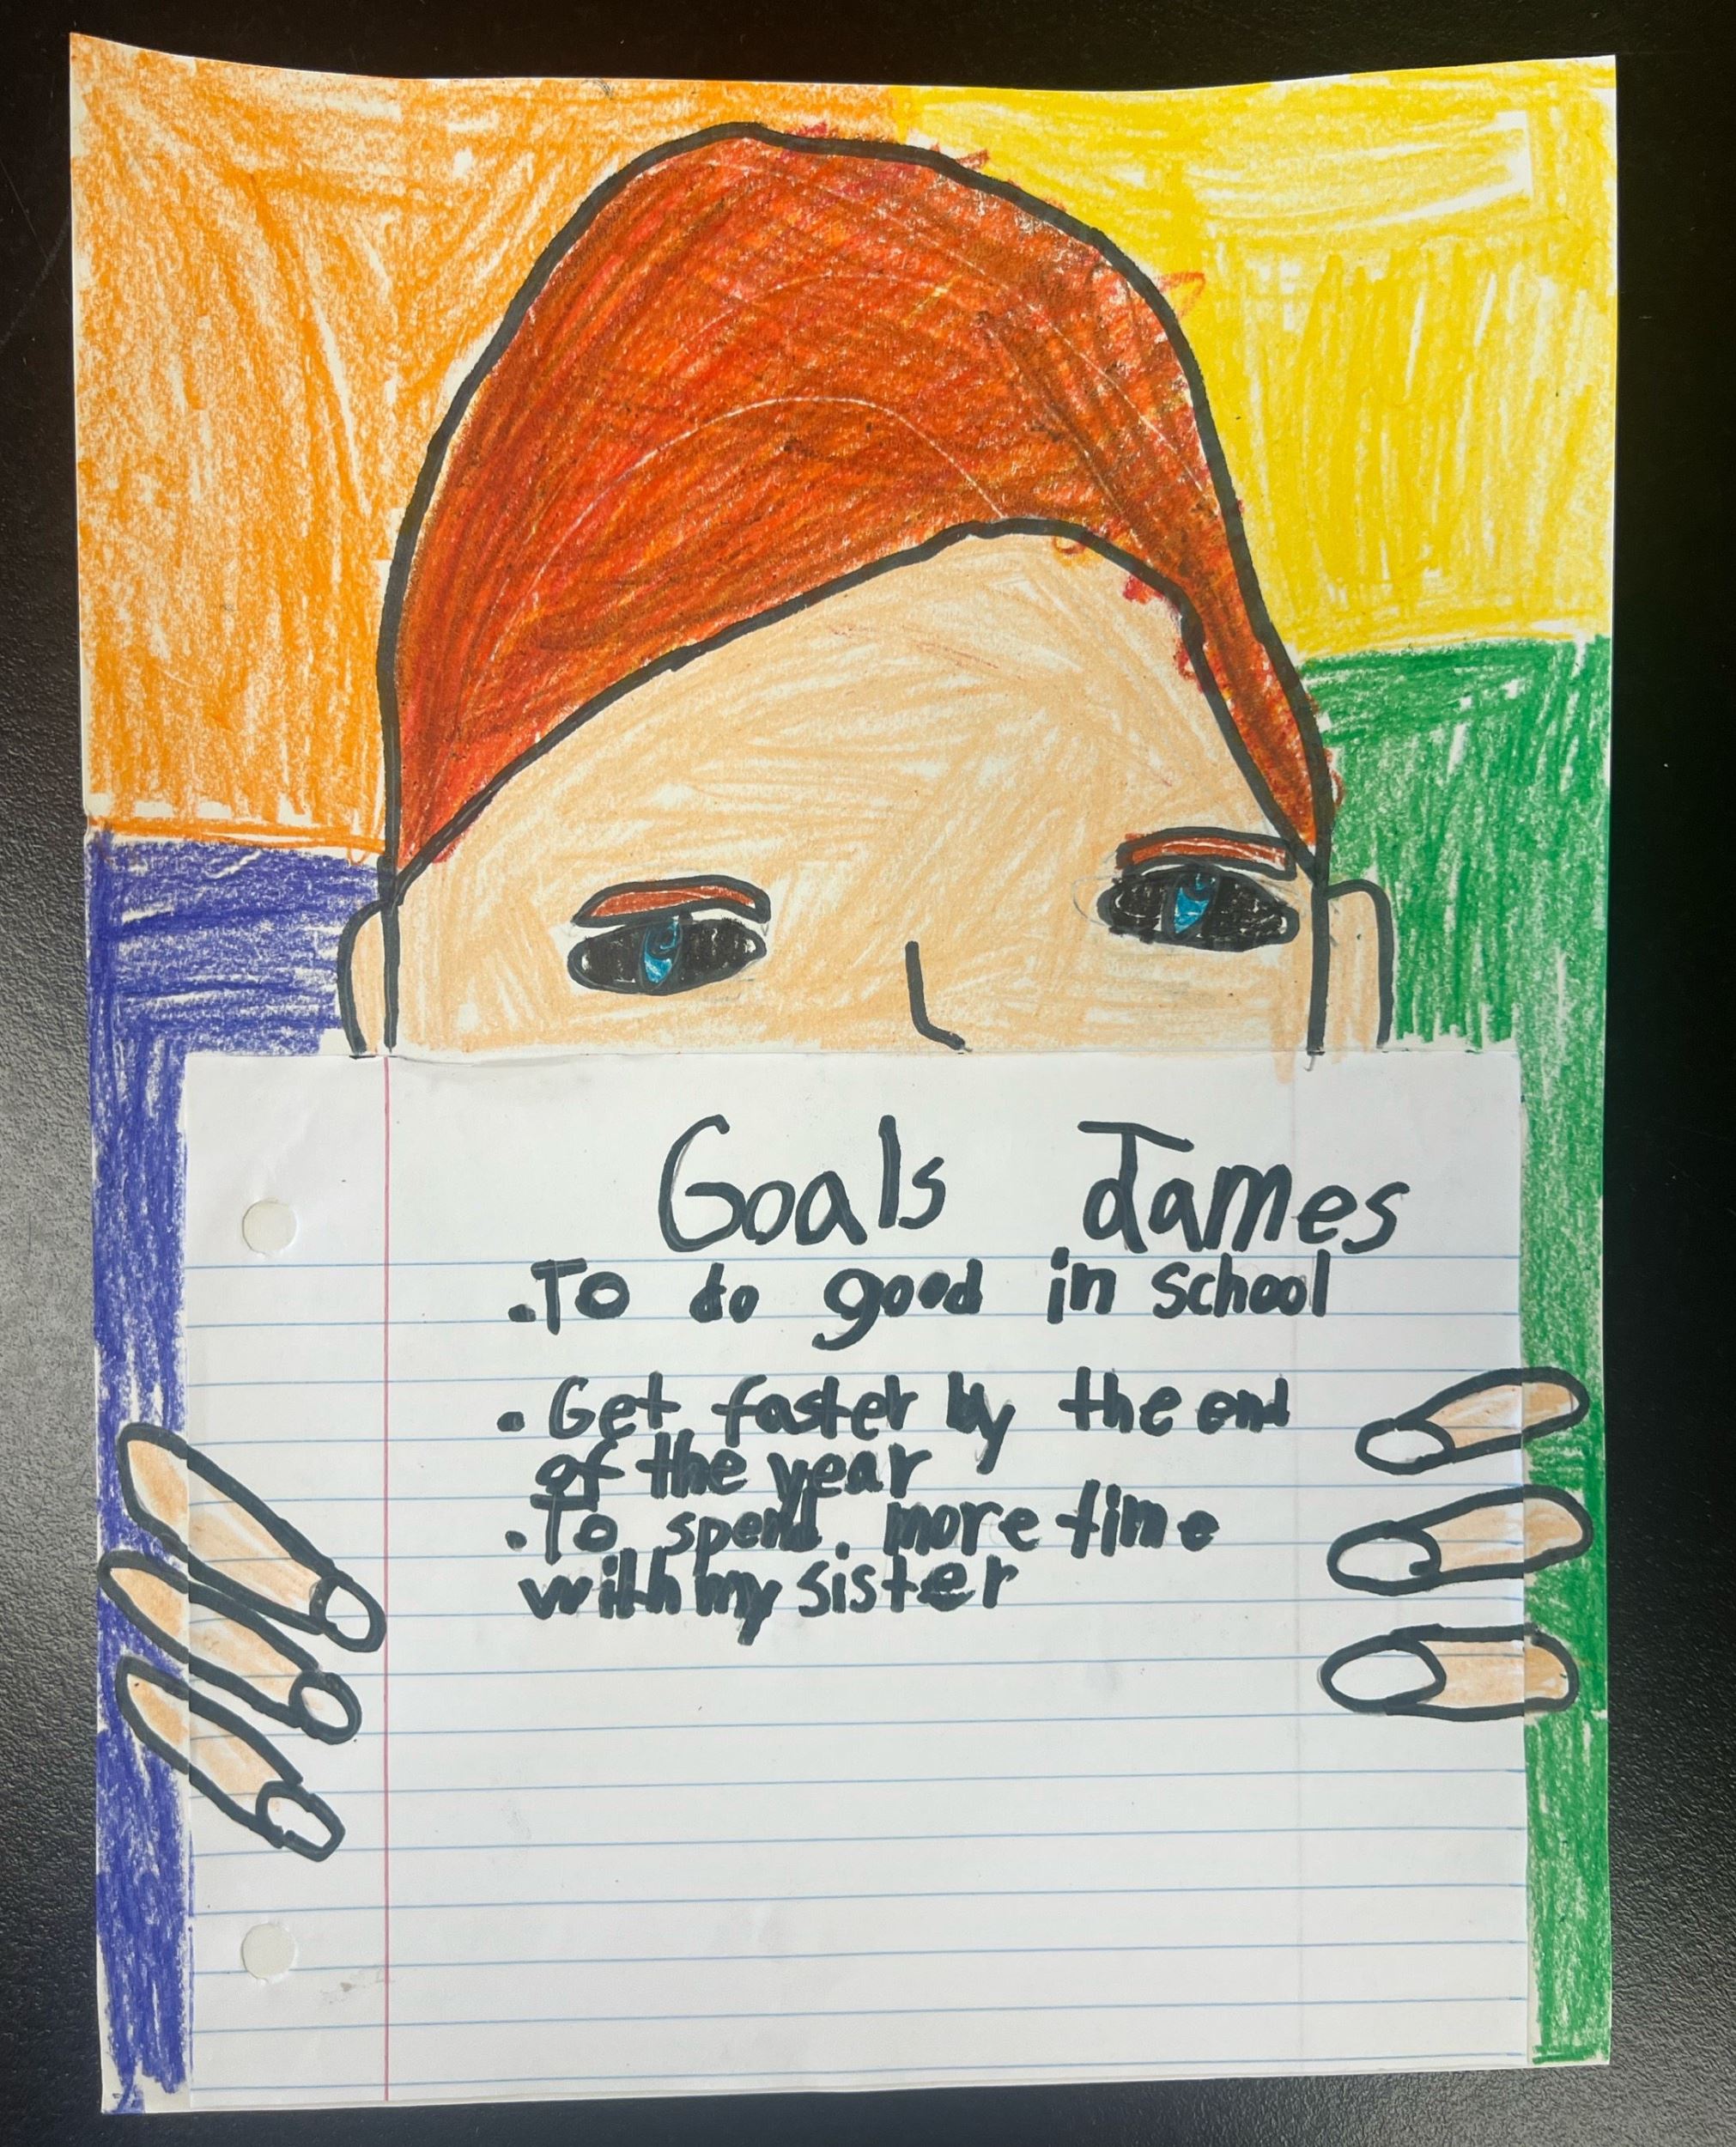 Goals James
.To do good in school
. Get faster by the end
of the year
. To spend more time
with my sister